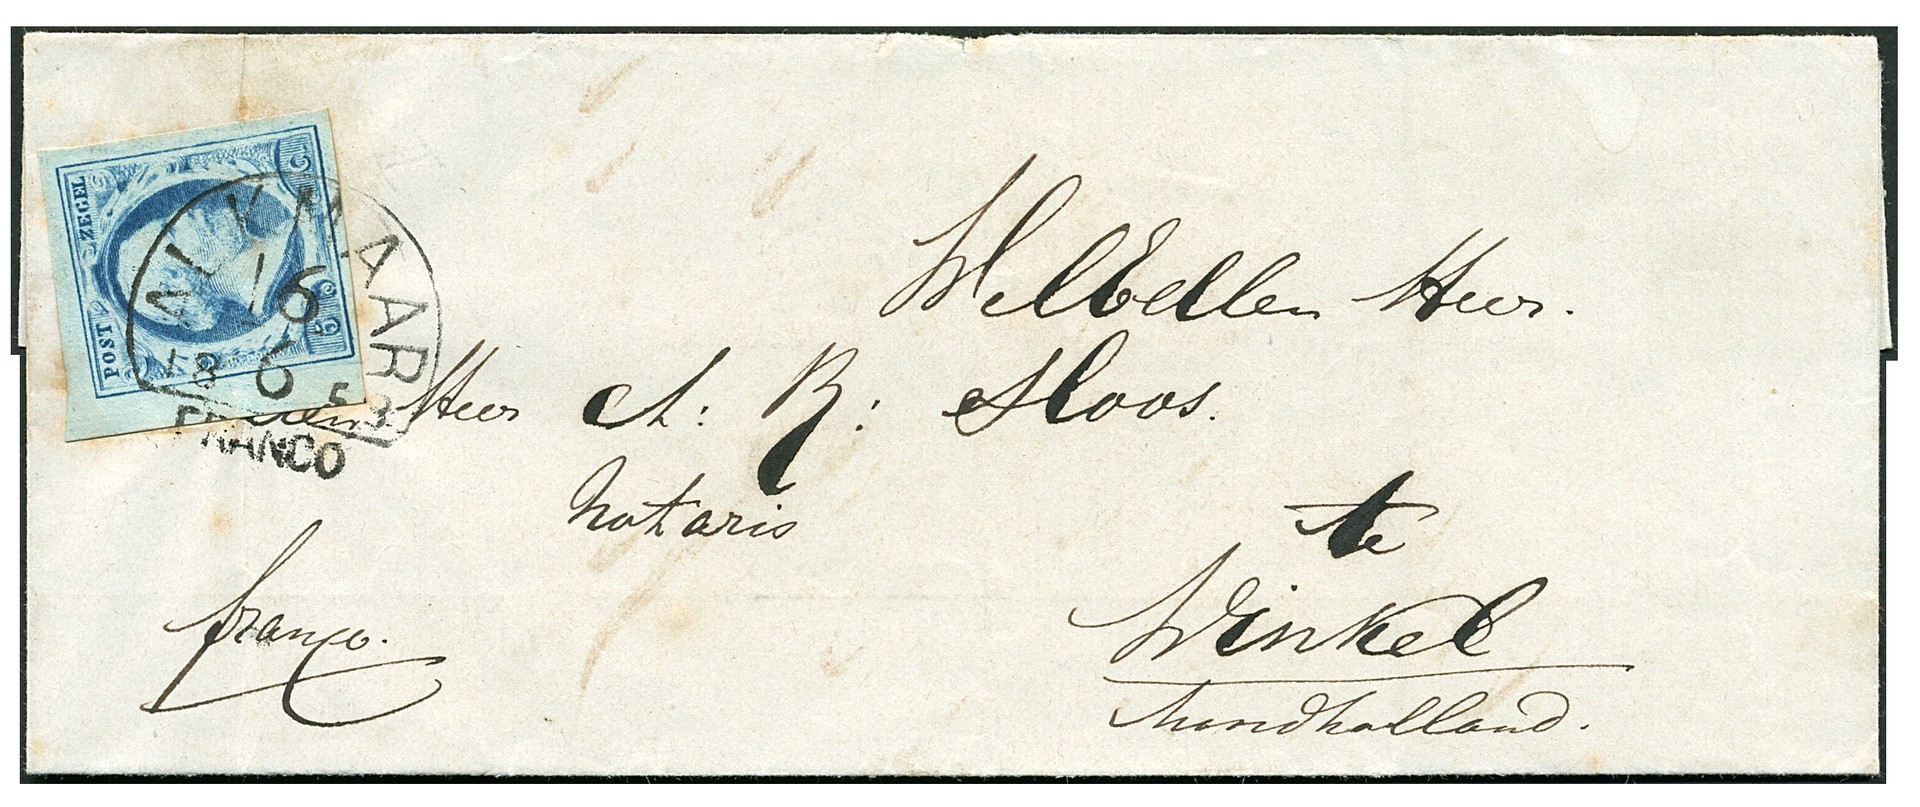 POST ZEGEL
5 C
ALKMAAR
16
6
18 53
FRANCO
WelEdelen Heer.
den Heer A: R: Sloos.
notaris
te
Winkel
Noordholland.
franco.